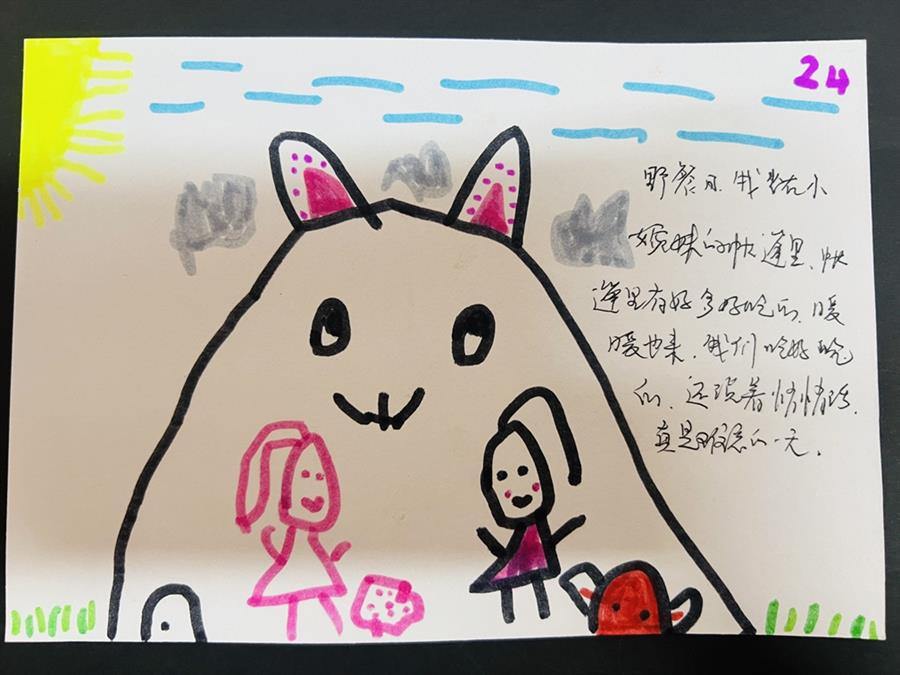 24
野餐日.我坐在小
姐妹的帐篷里.帐
篷里有好多好吃的.暖
暖也来.我们吃好吃
的.还说着悄悄话.
真是惬意的一天.